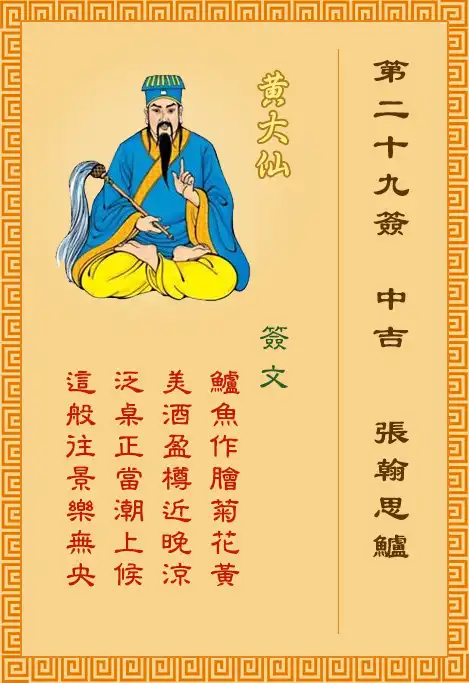 第二十九簽 中吉 張翰思鱸
黃大仙
簽文
鱸魚作膾菊花黃
美酒盈樽近晚涼
泛桌正當潮上候
這般往景樂無央